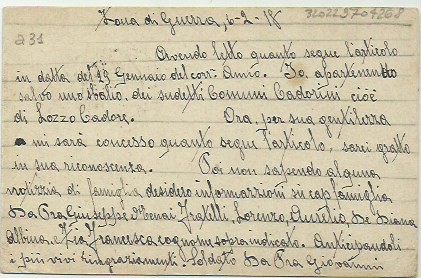 Zona di Guerra, 6-2-18
a31
Avendo letto quanto segue l'articolo
in datta del 29 Gennaro del corr. Anno. Io, apartenendo
salvo uno sbalio, dei sudetti Comuni Cadorini cioè
di Lozzo Cadore. Ora, per sua gentilezza
mi sarà concesso quanto segue l'articolo, sarei gratto
in sua riconoscenza. Poi non sapendo alguna
notizzia di famiglia desidero informazzioni su capfamiglia
Da Pra Giuseppe Fratelli, Lorenzo, Aurelio, De Diana
Albina, e Zia Francesca cognome sopraindicato. Anticipandoli
i più vivi ringraziamenti. Soldato Da Pra Giovanni